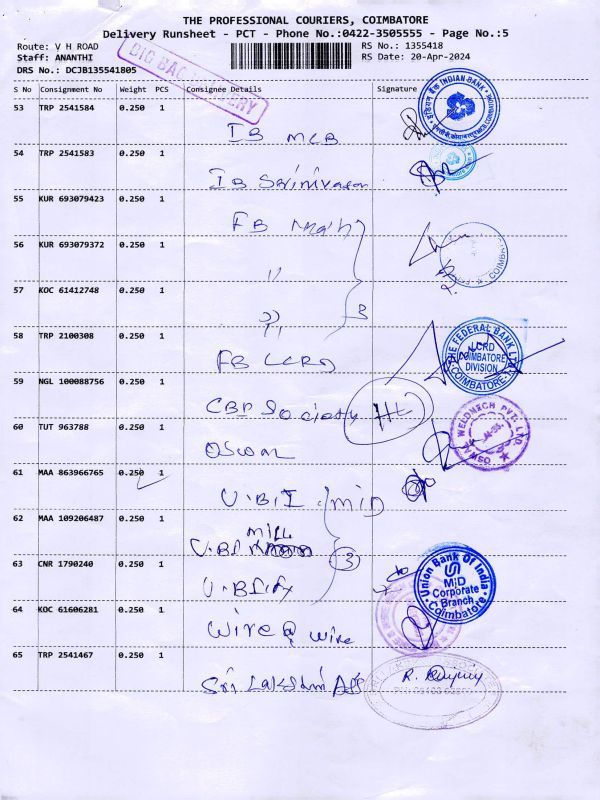 THE PROFESSIONAL COURIERS, COIMBATORE
Delivery Runsheet - PCT - Phone No.:0422-3505555 - Page No.:5
Route: V H ROAD
RS No.: 1355418
Staff: ANANTHI
RS Date: 20-Apr-2024
DRS No.: DCJB135541805
S No Consignment No Weight PCS Consignee Details Signature
53 TRP 2541584 0.250 1
IB MCB
54 TRP 2541583 0.250 1
IB Srinivasan
55 KUR 693079423 0.250 1
FB Main
56 KUR 693079372 0.250 1
"
57 KOC 61412748 0.250 1
" 3
58 TRP 2100308 0.250 1
FB LCRD
THE FEDERAL BANK LTD
LCRD
COIMBATORE
DIVISION
COIMBATORE
59 NGL 100088756 0.250 1
CBE Society
60 TUT 963788 0.250 1
OSWAL
OSWAL WELDMECH PVT. LTD.
61 MAA 863966765 0.250 1
U.B.I. MID
62 MAA 109206487 0.250 1
U.B.I Mill
3
63 CNR 1790240 0.250 1
Union Bank Of India
MID
Corporate
Branch
Coimbatore
64 KOC 61606281 0.250 1
Wire @ wire
65 TRP 2541467 0.250 1
Sri Lakshmi